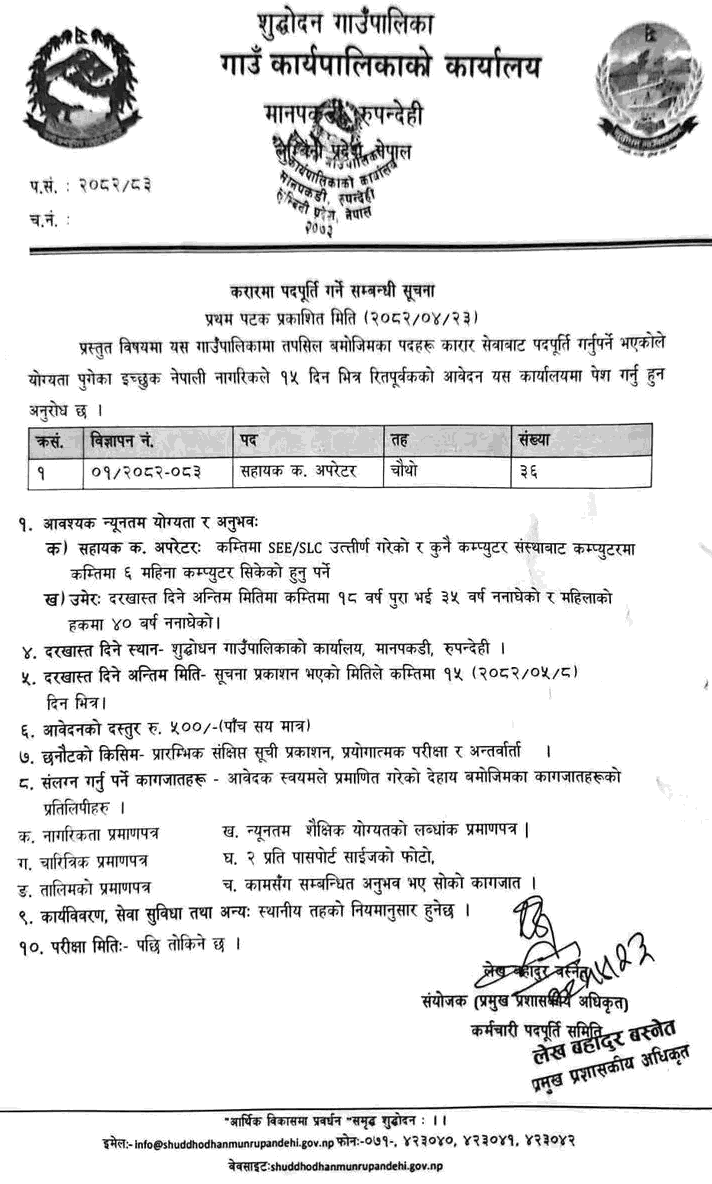 शुद्धोदन गाउँपालिका
गाउँ कार्यपालिकाको कार्यालय
मानपकडी, रुपन्देही
लुम्बिनी प्रदेश, नेपाल
कार्यपालिकाको कार्यालय
मानपकडी, रुपन्देही
लुम्बिनी प्रदेश, नेपाल
२०७३
प.सं. : २०८२/८३
च.नं. :
करारमा पदपूर्ति गर्ने सम्बन्धी सूचना
प्रथम पटक प्रकाशित मिति (२०८२/०४/२३)
प्रस्तुत विषयमा यस गाउँपालिकामा तपसिल बमोजिमका पदहरू कारार सेवाबाट पदपूर्ति गर्नुपर्ने भएकोले
योग्यता पुगेका इच्छुक नेपाली नागरिकले १५ दिन भित्र रितपूर्वकको आवेदन यस कार्यालयमा पेश गर्नु हुन
अनुरोध छ ।
क्रसं. विज्ञापन नं. पद तह संख्या
१ ०१/२०८२-०८३ सहायक क. अपरेटर चौथो ३६
१. आवश्यक न्यूनतम योग्यता र अनुभवः
क) सहायक क. अपरेटरः कम्तिमा SEE/SLC उत्तीर्ण गरेको र कुनै कम्प्युटर संस्थाबाट कम्प्युटरमा
कम्तिमा ६ महिना कम्प्युटर सिकेको हुनु पर्ने
ख) उमेरः दरखास्त दिने अन्तिम मितिमा कम्तिमा १८ वर्ष पुरा भई ३५ वर्ष ननाघेको र महिलाको
हकमा ४० बर्ष ननाघेको।
४. दरखास्त दिने स्थान- शुद्धोधन गाउँपालिकाको कार्यालय, मानपकडी, रुपन्देही ।
५. दरखास्त दिने अन्तिम मिति- सूचना प्रकाशन भएको मितिले कम्तिमा १५ (२०८२/०५/८)
दिन भित्र।
६. आवेदनको दस्तुर रु. ५००/-(पाँच सय मात्र)
७. छनौटको किसिम- प्रारम्भिक संक्षिप्त सूची प्रकाशन, प्रयोगात्मक परीक्षा र अन्तर्वार्ता ।
८. संलग्न गर्नु पर्ने कागजातहरू - आवेदक स्वयमले प्रमाणित गरेको देहाय बमोजिमका कागजातहरूको
प्रतिलिपीहरु ।
क. नागरिकता प्रमाणपत्र ख. न्यूनतम शैक्षिक योग्यतको लब्धांक प्रमाणपत्र |
ग. चारित्रिक प्रमाणपत्र घ. २ प्रति पासपोर्ट साईजको फोटो,
ङ. तालिमको प्रमाणपत्र च. कामसँग सम्बन्धित अनुभव भए सोको कागजात ।
९. कार्यविवरण, सेवा सुविधा तथा अन्यः स्थानीय तहको नियमानुसार हुनेछ ।
१०. परीक्षा मितिः- पछि तोकिने छ ।
लेख बहादुर बस्नेत
संयोजक (प्रमुख प्रशासकीय अधिकृत)
कर्मचारी पदपूर्ति समिति
लेख बहादुर बस्नेत
प्रमुख प्रशासकीय अधिकृत
"आर्थिक विकासमा प्रवर्धन "समृद्ध शुद्धोदन : ।।
इमेल:-info@shuddhodhanmunrupandehi.gov.np फोनः-०७१-, ४२३०४०, ४२३०४१, ४२३०४२
वेवसाइटःshuddhodhanmunrupandehi.gov.np